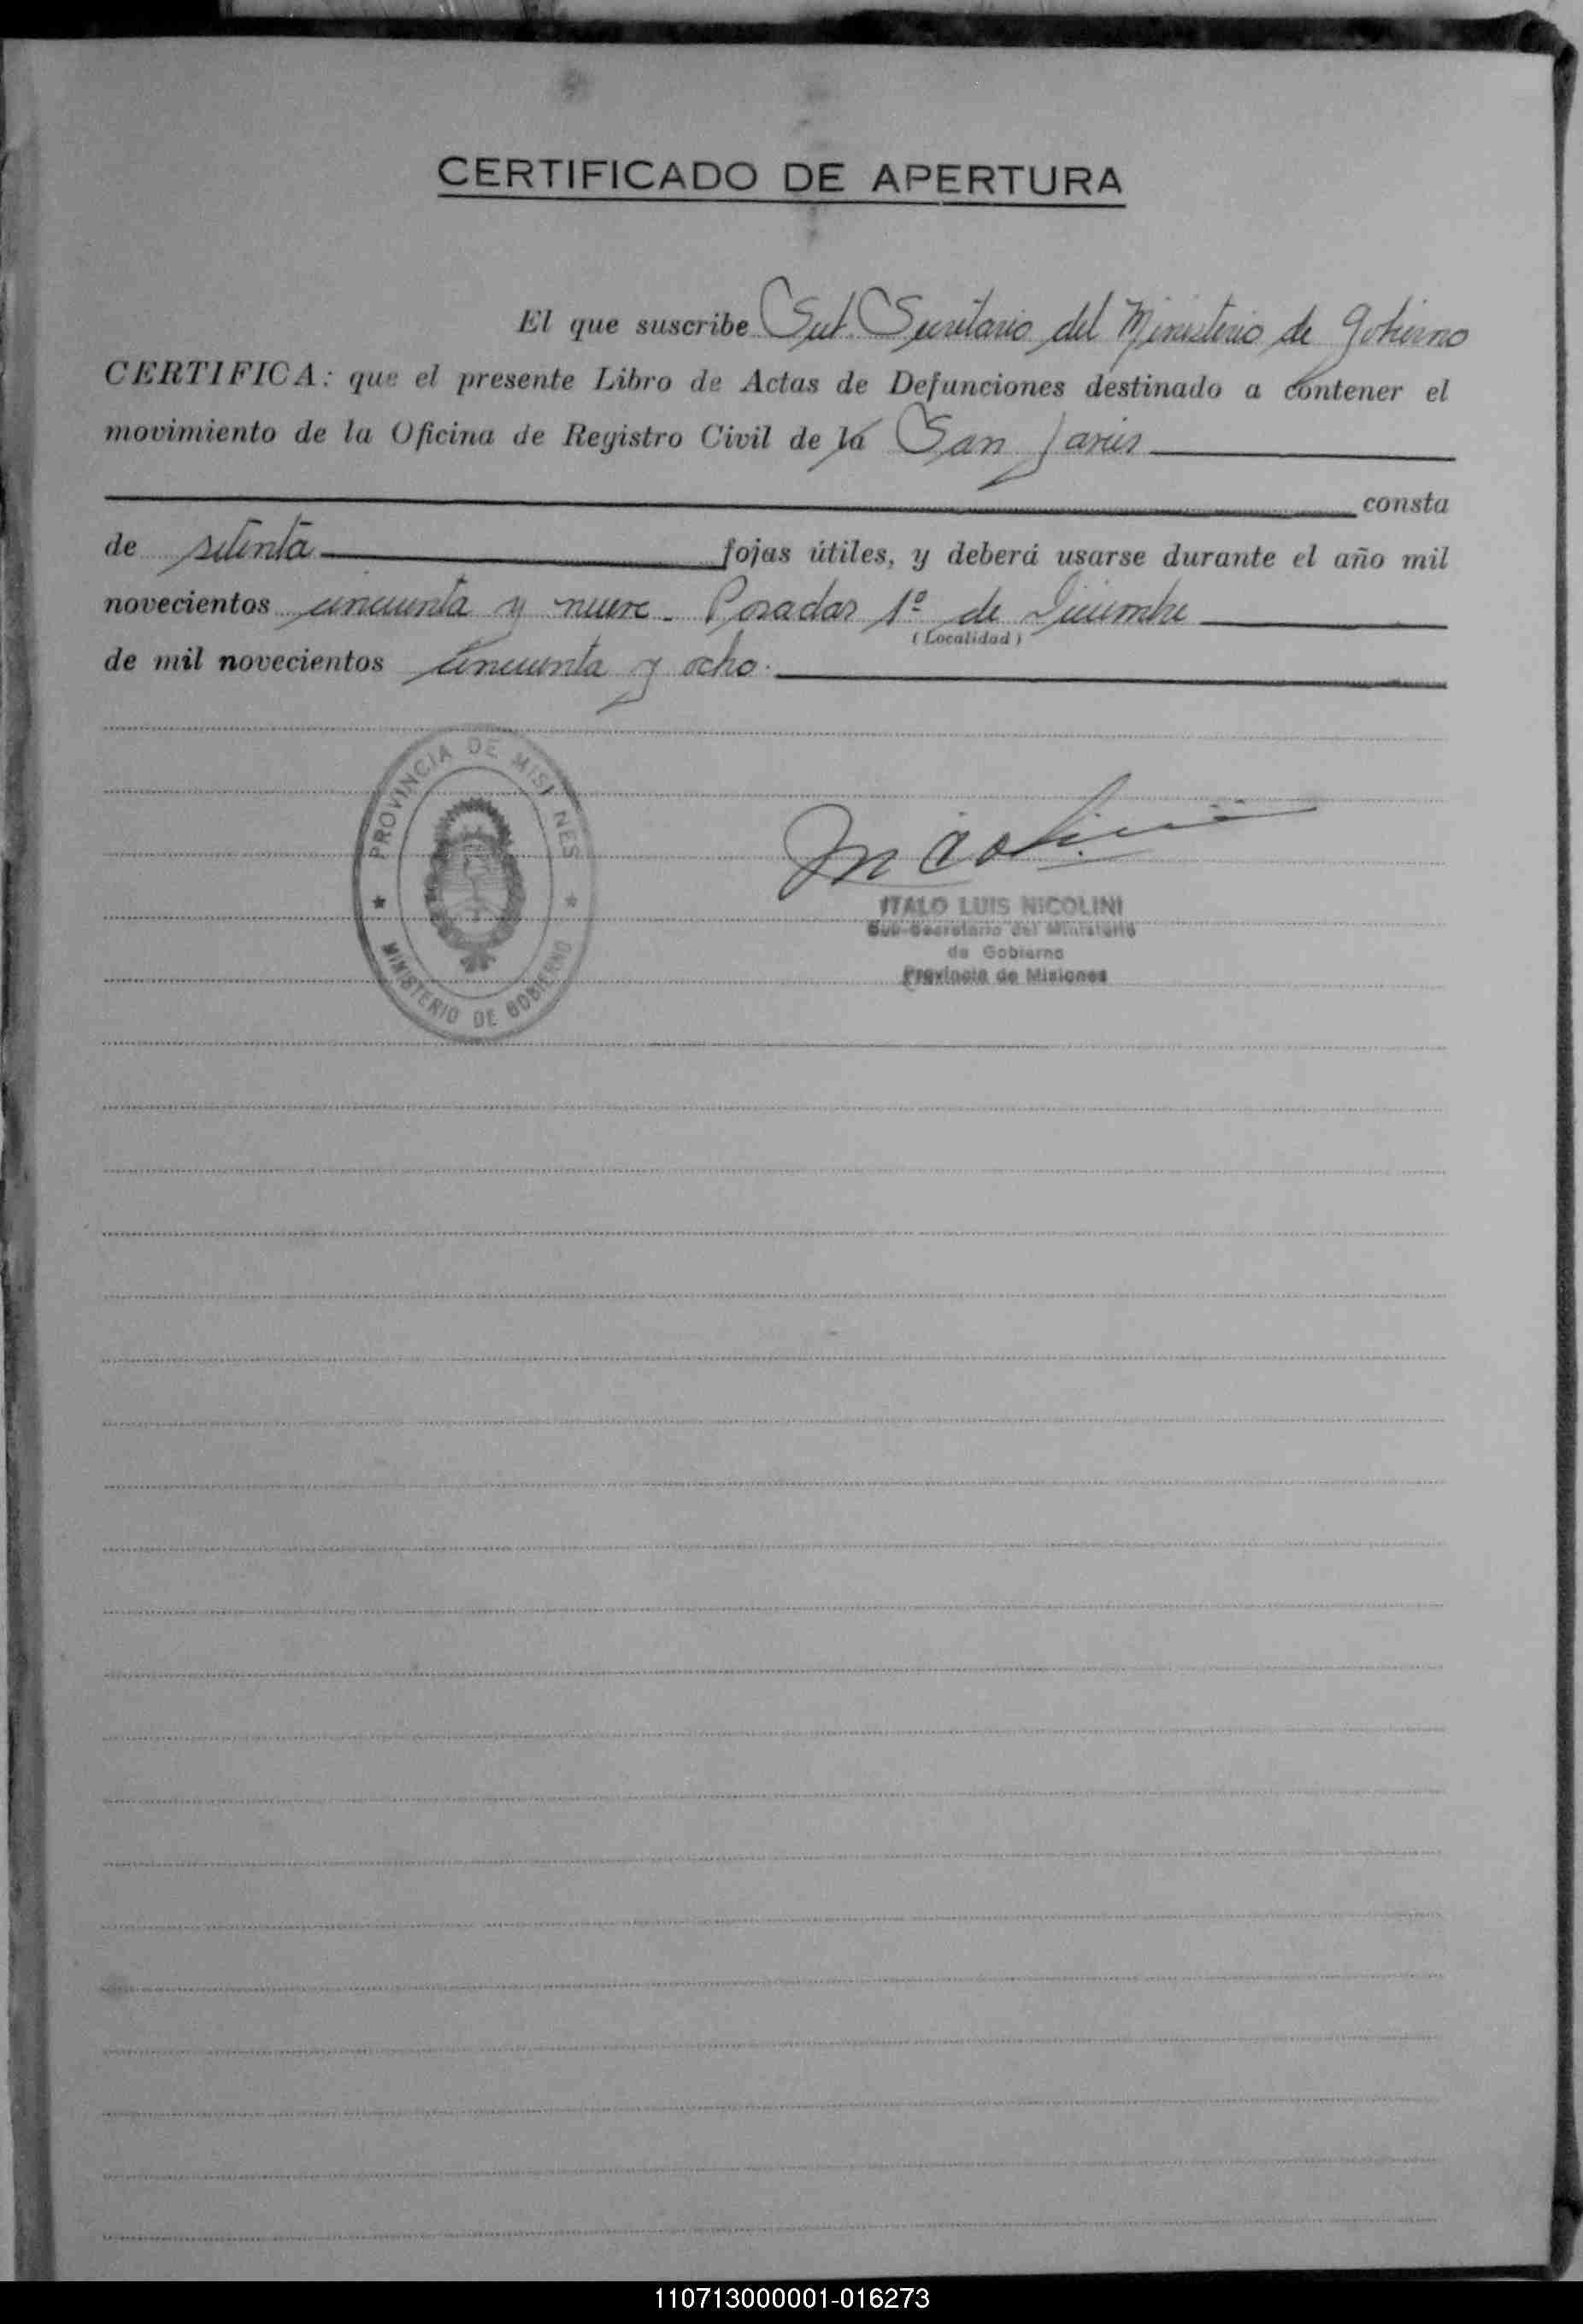 CERTIFICADO DE APERTURA
El que suscribe Sub Secretario del Ministerio de Gobierno
CERTIFICA: que el presente Libro de Actas de Defunciones destinado a contener el
movimiento de la Oficina de Registro Civil de la San Javier
consta
de setenta fojas útiles, y deberá usarse durante el año mil
novecientos cincuenta y nueve. Posadas 1º de Diciembre
(Localidad)
de mil novecientos cincuenta y ocho.
PROVINCIA DE MISIONES
MINISTERIO DE GOBIERNO
Nicolini
ITALO LUIS NICOLINI
Sub-Secretario del Ministerio
de Gobierno
Provincia de Misiones
110713000001-016273